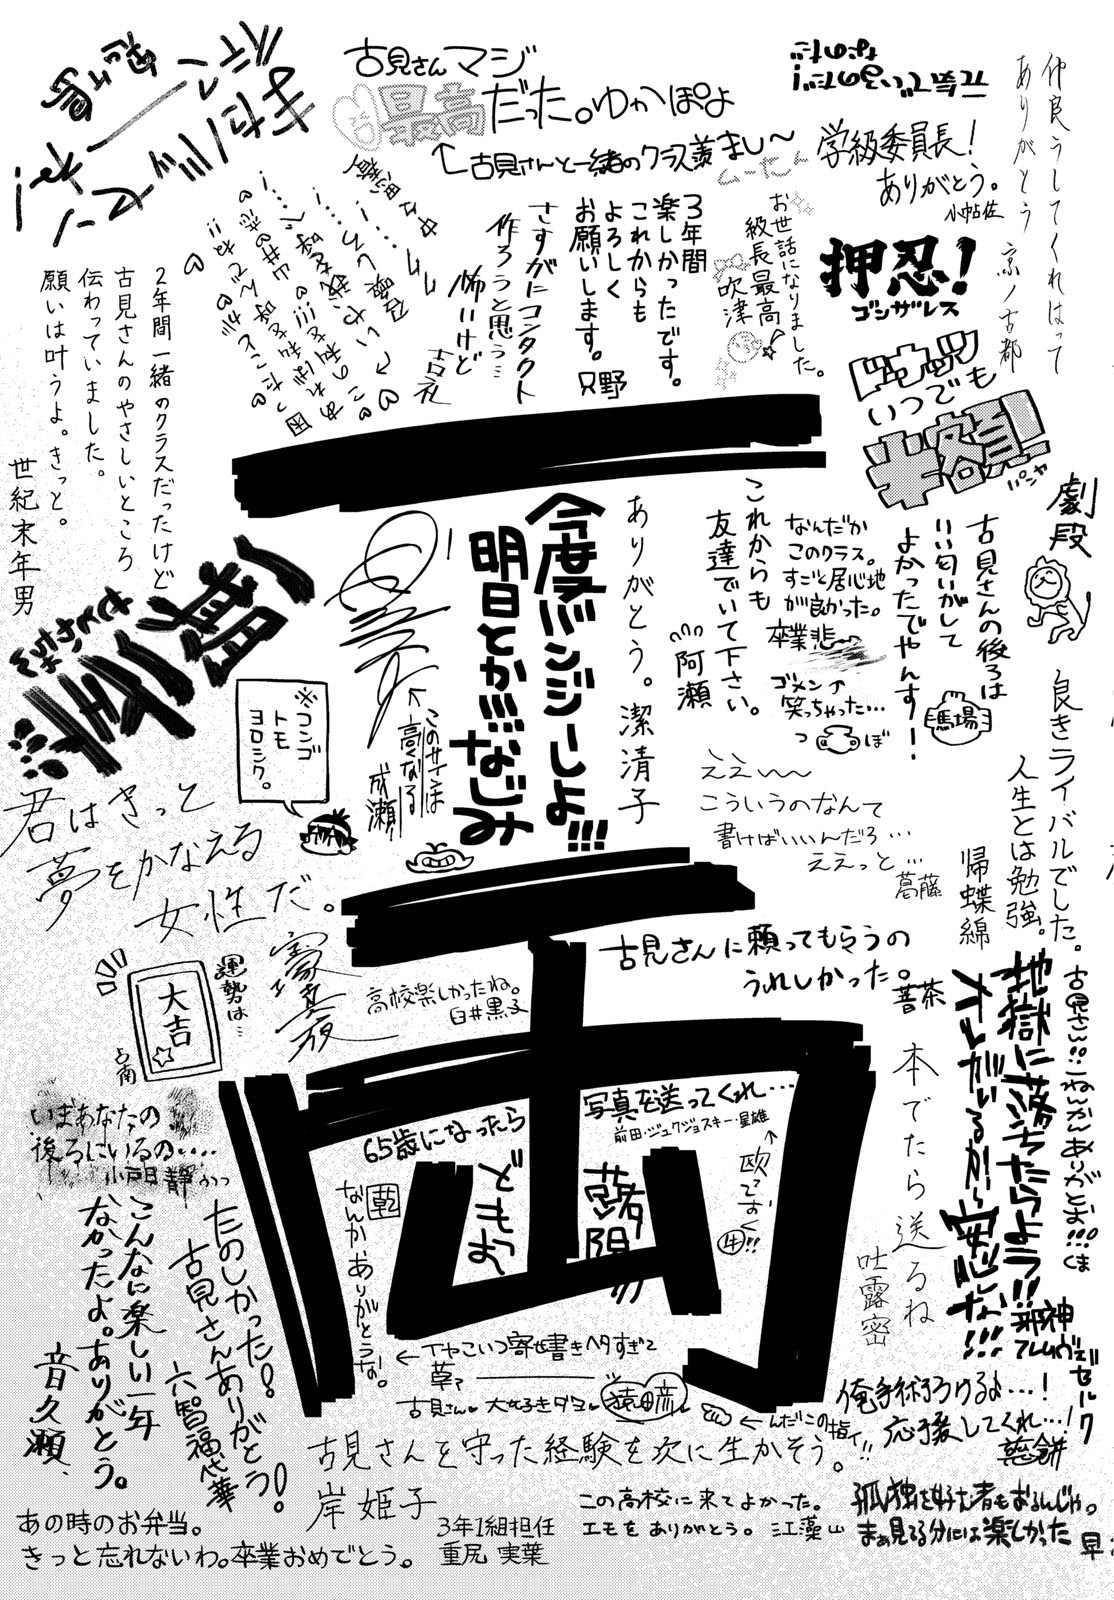 古見さんマジ
最高だった。ゆかぽよ
古見さんと一緒のクラス羨まし〜
学級委員長!
ありがとう。
小帖佐
仲良うしてくれはって
ありがとう 京ノ古都
お世話になりました。
級長最高
吹津
押忍!
ゴンザレス
ドーナッツ
いつでも
半額!!
パンヤ
3年間
楽しかったです。
これからも
よろしく
お願いします。只野
さすがにコンタクト
作ろうと思う…
怖いけど
古礼
2年間一緒のクラスだったけど
古見さんのやさしいところ
伝わっていました。
願いは叶うよ。きっと。
世紀末年男
一期一会
やまださん
劇段
古見さんの後ろは
いい匂いがして
よかったでやんす!
馬場
なんだか
このクラス。
すごく居心地
が良かった。
卒業悲
ゴメン
笑っちゃった…
つぼ
これからも
友達でいて下さい。
阿瀬
ありがとう。潔清子
今度バンジーしよ!!!
明日とか!!!なじみ
このサインは
高くなる
成瀬
※コンゴ
トモ
ヨロシク。
君はきっと
夢をかなえる
女性だ。
ええ〜
こういうのなんて
書けばいいんだろ…
ええっと…
葛藤
良きライバルでした。
人生とは勉強。
帰蝶綿
古見さんに頼ってもらうの
うれしかった。
普茶
高校楽しかったね。
白井黒子
運勢は…
大吉
占南
いまあなたの
後ろにいるの…
小戸日静
古見さん!!一ねんかんありがとお!!!くま
地獄に落ちたらよう!!
オレがいるから安心しな!!!
邪神
本でたら送るね
吐露密
写真を送ってくれ…
前田・ジュクジョスキー・星雄
65歳になったら
どもっ
乾
なんか、ありがとうな。
たのしかった!
古見さんありがとう!
六智福代華
こんなに楽しい一年
なかったよ。ありがとう。
音久瀬、
イヤこいつ寄せ書きヘタすぎて
草
古見さん 大好きダヨ
猿田彦
んだこの指ィ!!
俺手術うけるよ…!
応援してくれ…!
古見さんを守った経験を次に生かそう。
岸姫子
あの時のお弁当。
きっと忘れないわ。卒業おめでとう。
3年1組担任
重尻 実葉
この高校に来てよかった。
エモをありがとう。 江藻山
孤独を好む者もおるんじゃ。
まぁ見てる分には楽しかった